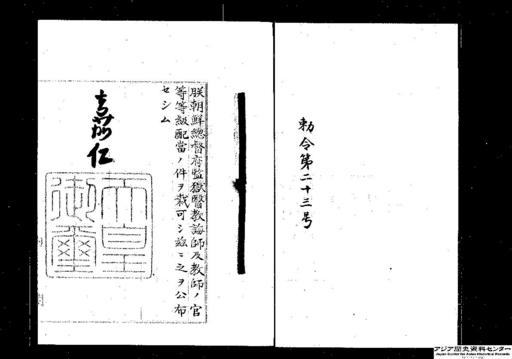 勅令第二十三号
朕朝鮮總督府監獄醫教誨師及教師ノ官
等等級配當ノ件ヲ裁可シ茲ニ之ヲ公布
セシム
嘉仁
天皇
御璽
アジア歴史資料センター
Japan Center for Asian Historical Records